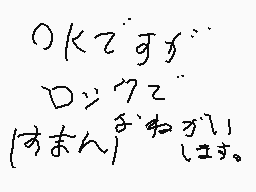 OKですが
ロックで
おねがい
(すまん)
します。